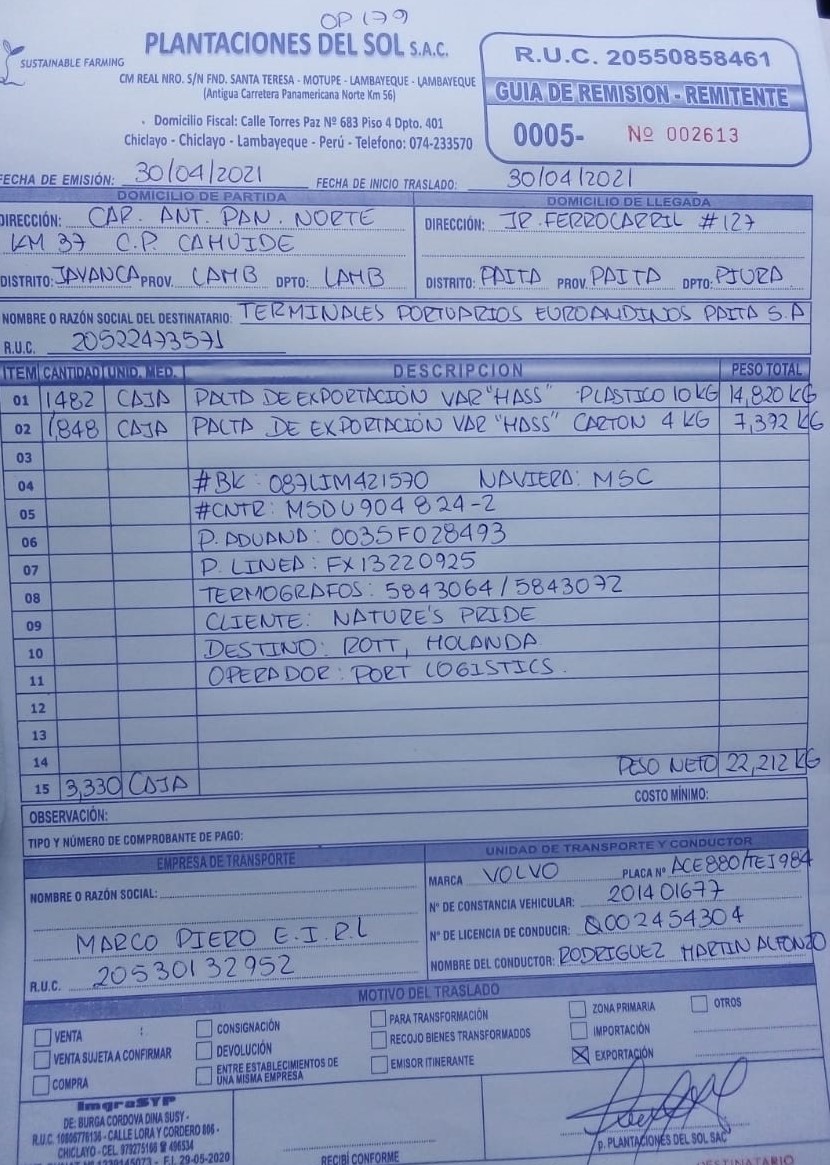 OP 179
SUSTAINABLE FARMING
PLANTACIONES DEL SOL S.A.C.
CM REAL NRO. S/N FND. SANTA TERESA - MOTUPE - LAMBAYEQUE - LAMBAYEQUE
(Antigua Carretera Panamericana Norte Km 56)
Domicilio Fiscal: Calle Torres Paz Nº 683 Piso 4 Dpto. 401
Chiclayo - Chiclayo - Lambayeque - Perú - Telefono: 074-233570
R.U.C. 20550858461
GUIA DE REMISION - REMITENTE
0005- Nº 002613
FECHA DE EMISIÓN: 30/04/2021 FECHA DE INICIO TRASLADO: 30/04/2021
DOMICILIO DE PARTIDA
DIRECCIÓN: CAR. ANT. PAN. NORTE
KM 37 C.P. CAHUIDE
DISTRITO: JAYANCA PROV. LAMB DPTO: LAMB
DOMICILIO DE LLEGADA
DIRECCIÓN: JR. FERROCARRIL #127
DISTRITO: PAITA PROV. PAITA DPTO: PIURA
NOMBRE O RAZÓN SOCIAL DEL DESTINATARIO: TERMINALES PORTUARIOS EUROANDINOS PAITA S.A
R.U.C. 20522473571
ITEM CANTIDAD UNID. MED. DESCRIPCION PESO TOTAL
01 1482 CAJA PALTA DE EXPORTACIÓN VAR "HASS" PLASTICO 10 KG 14,820 KG
02 1848 CAJA PALTA DE EXPORTACIÓN VAR "HASS" CARTON 4 KG 7,392 KG
03
04 #BK: 087LIM421570 NAVIERA: MSC
05 #CNTR: MSDU904824-2
06 P. ADUANA: 0035F028493
07 P. LINEA: FX13220925
08 TERMOGRAFOS: 5843064/5843072
09 CLIENTE: NATURE'S PRIDE
10 DESTINO: ROTT, HOLANDA
11 OPERADOR: PORT LOGISTICS.
12
13
14 PESO NETO 22,212 KG
15 3,330 CAJA
COSTO MÍNIMO:
OBSERVACIÓN:
TIPO Y NÚMERO DE COMPROBANTE DE PAGO:
EMPRESA DE TRANSPORTE
NOMBRE O RAZÓN SOCIAL:
MARCO PIERO E.I.R.L
R.U.C. 20530132952
UNIDAD DE TRANSPORTE Y CONDUCTOR
MARCA VOLVO PLACA Nº ACE880/TEJ984
Nº DE CONSTANCIA VEHICULAR: 201401677
Nº DE LICENCIA DE CONDUCIR: Q002454304
NOMBRE DEL CONDUCTOR: RODRIGUEZ MARTIN ALFONZO
MOTIVO DEL TRASLADO
VENTA
VENTA SUJETA A CONFIRMAR
COMPRA
CONSIGNACIÓN
DEVOLUCIÓN
ENTRE ESTABLECIMIENTOS DE
UNA MISMA EMPRESA
PARA TRANSFORMACIÓN
RECOJO BIENES TRANSFORMADOS
EMISOR ITINERANTE
ZONA PRIMARIA
IMPORTACIÓN
EXPORTACIÓN
OTROS
ImgraSYP
DE: BURGA CORDOVA DINA SUSY -
R.U.C. 10806776136 - CALLE LORA Y CORDERO 806 -
CHICLAYO - CEL. 979275166 ☎ 496534
F.I. 29-05-2020
RECIBÍ CONFORME
p. PLANTACIONES DEL SOL SAC
DESTINATARIO